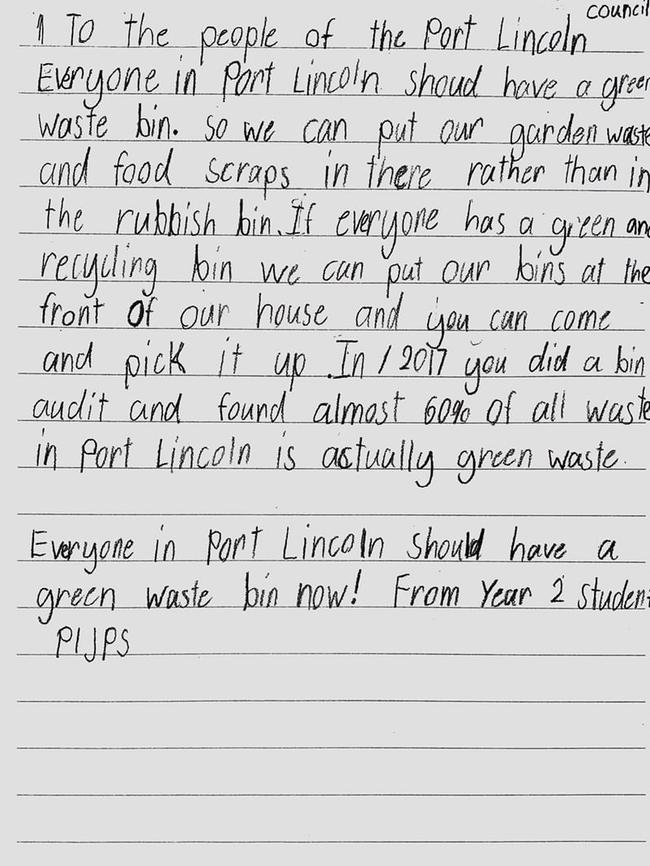 council
1 To the people of the Port Lincoln
Everyone in Port Lincoln shoud have a green
waste bin. so we can put our garden waste
and food scraps in there rather than in
the rubbish bin. If everyone has a green and
recycling bin we can put our bins at the
front of our house and you can come
and pick it up .In / 2017 you did a bin
audit and found almost 60% of all waste
in Port Lincoln is actually green waste.
Everyone in Port Lincoln should have a
green waste bin now! From Year 2 student
PIJPS